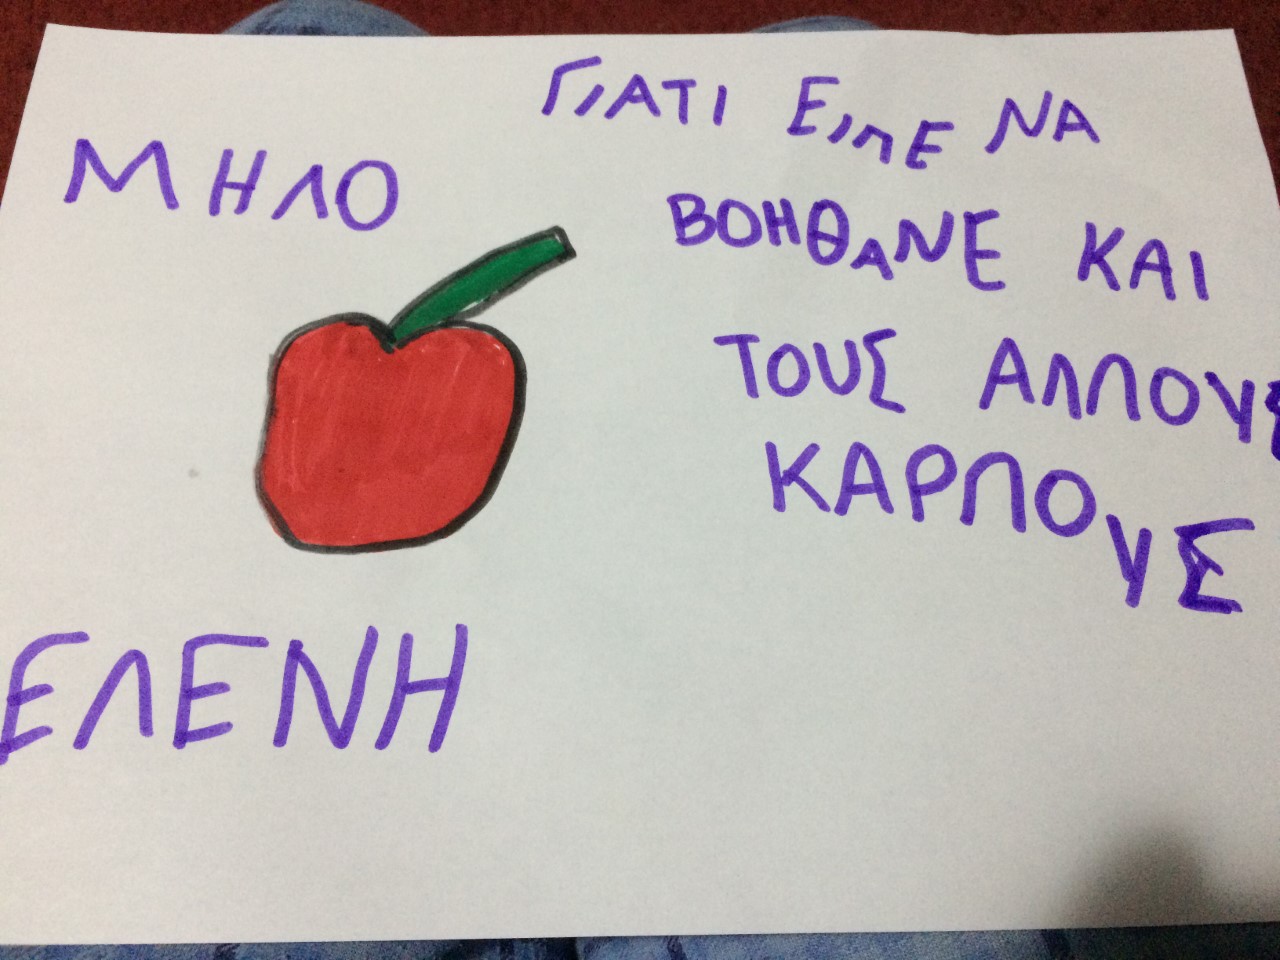 ΜΗΛΟ
ΓΙΑΤΙ ΕΙΠΕ ΝΑ
ΒΟΗΘΑΝΕ ΚΑΙ
ΤΟΥΣ ΑΛΛΟΥΣ
ΚΑΡΠΟΥΣ
ΕΛΕΝΗ